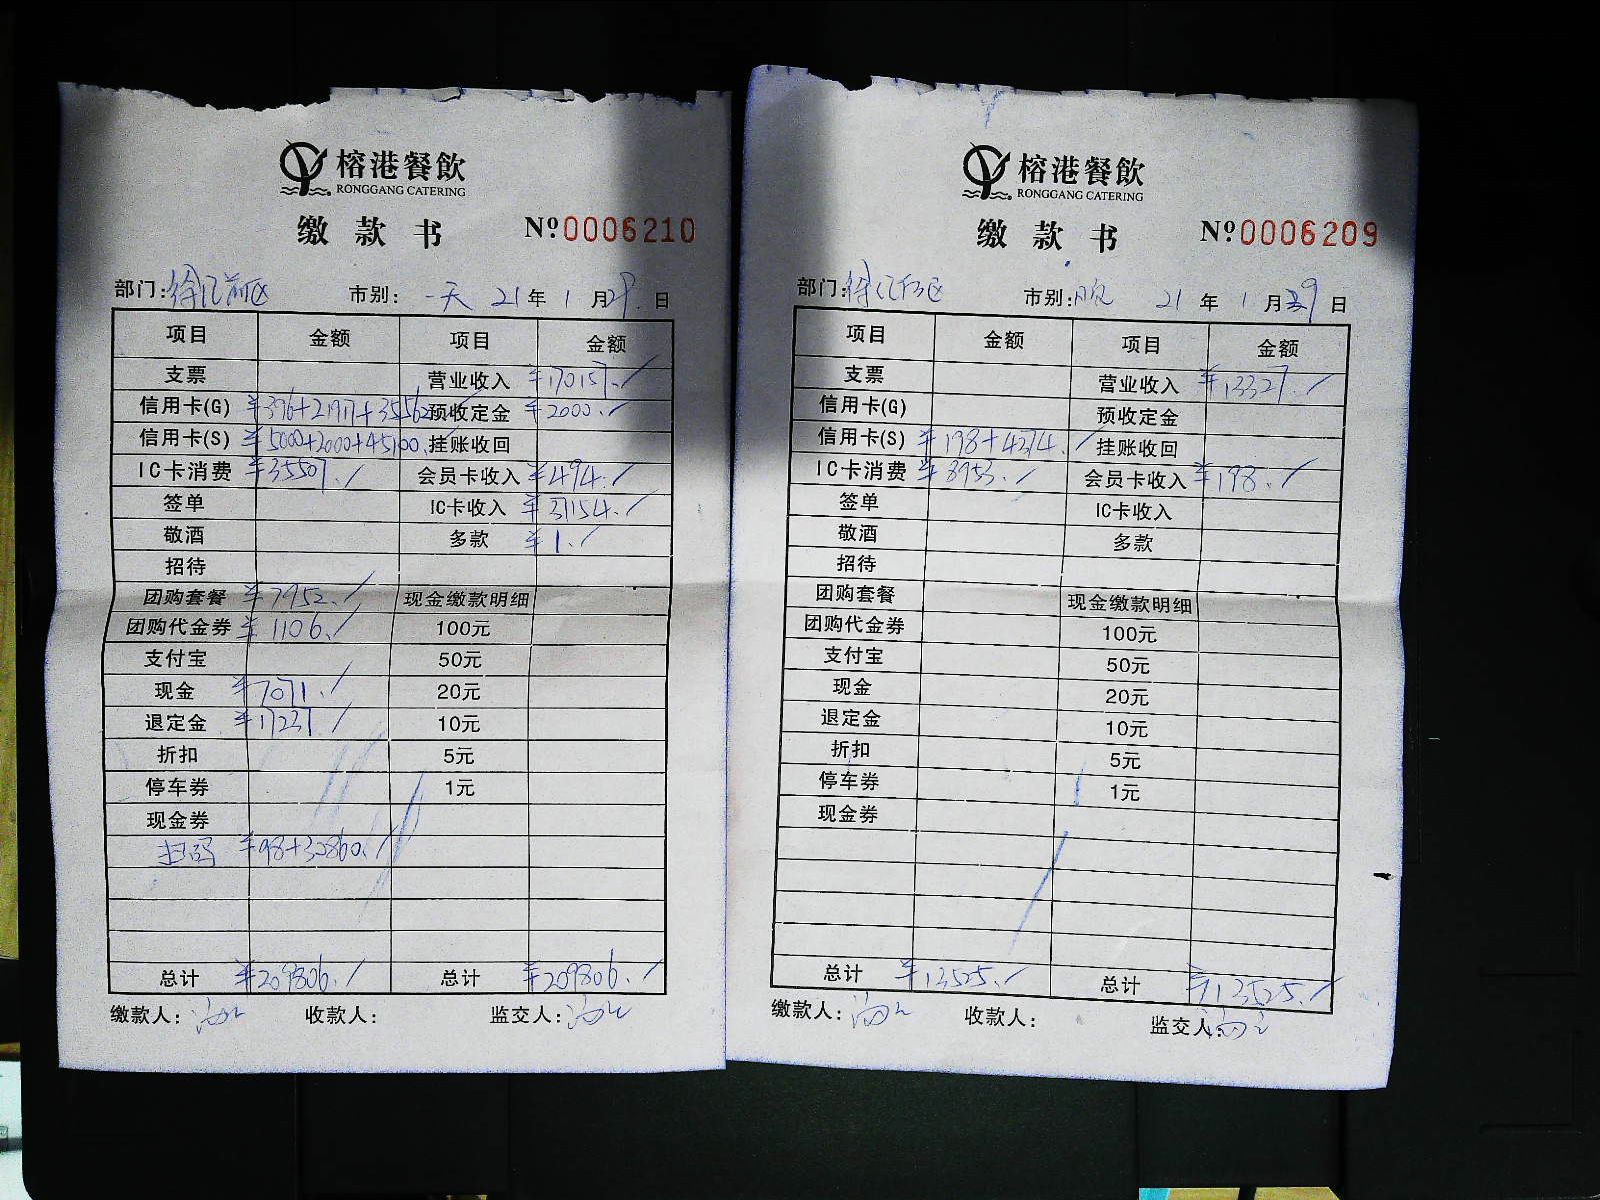 榕港餐飲
RONGGANG CATERING
缴款书 Nº0006210
部门:徐汇前区 市别:一天 21年1月29日
项目 金额 项目 金额
支票 营业收入 ¥170157.
信用卡(G) ¥396+21917+35562 预收定金 ¥2000.
信用卡(S) ¥5000+2000+45100. 挂账收回
IC卡消费 ¥35507. 会员卡收入 ¥494.
签单 IC卡收入 ¥37154.
敬酒 多款 ¥1.
招待
团购套餐 ¥7952. 现金缴款明细
团购代金券 ¥1106. 100元
支付宝 50元
现金 ¥7071. 20元
退定金 ¥17237 10元
折扣 5元
停车券 1元
现金券
扫码 ¥98+30860.
总计 ¥209806. 总计 ¥209806.
缴款人: 收款人: 监交人:
榕港餐飲
RONGGANG CATERING
缴款书 Nº0006209
部门:徐汇 市别: 21年1月29日
项目 金额 项目 金额
支票 营业收入 ¥13327.
信用卡(G) 预收定金
信用卡(S) ¥198+4374. 挂账收回
IC卡消费 ¥8953. 会员卡收入 ¥198.
签单 IC卡收入
敬酒 多款
招待
团购套餐 现金缴款明细
团购代金券 100元
支付宝 50元
现金 20元
退定金 10元
折扣 5元
停车券 1元
现金券
总计 ¥13525. 总计 ¥13525.
缴款人: 收款人: 监交人: